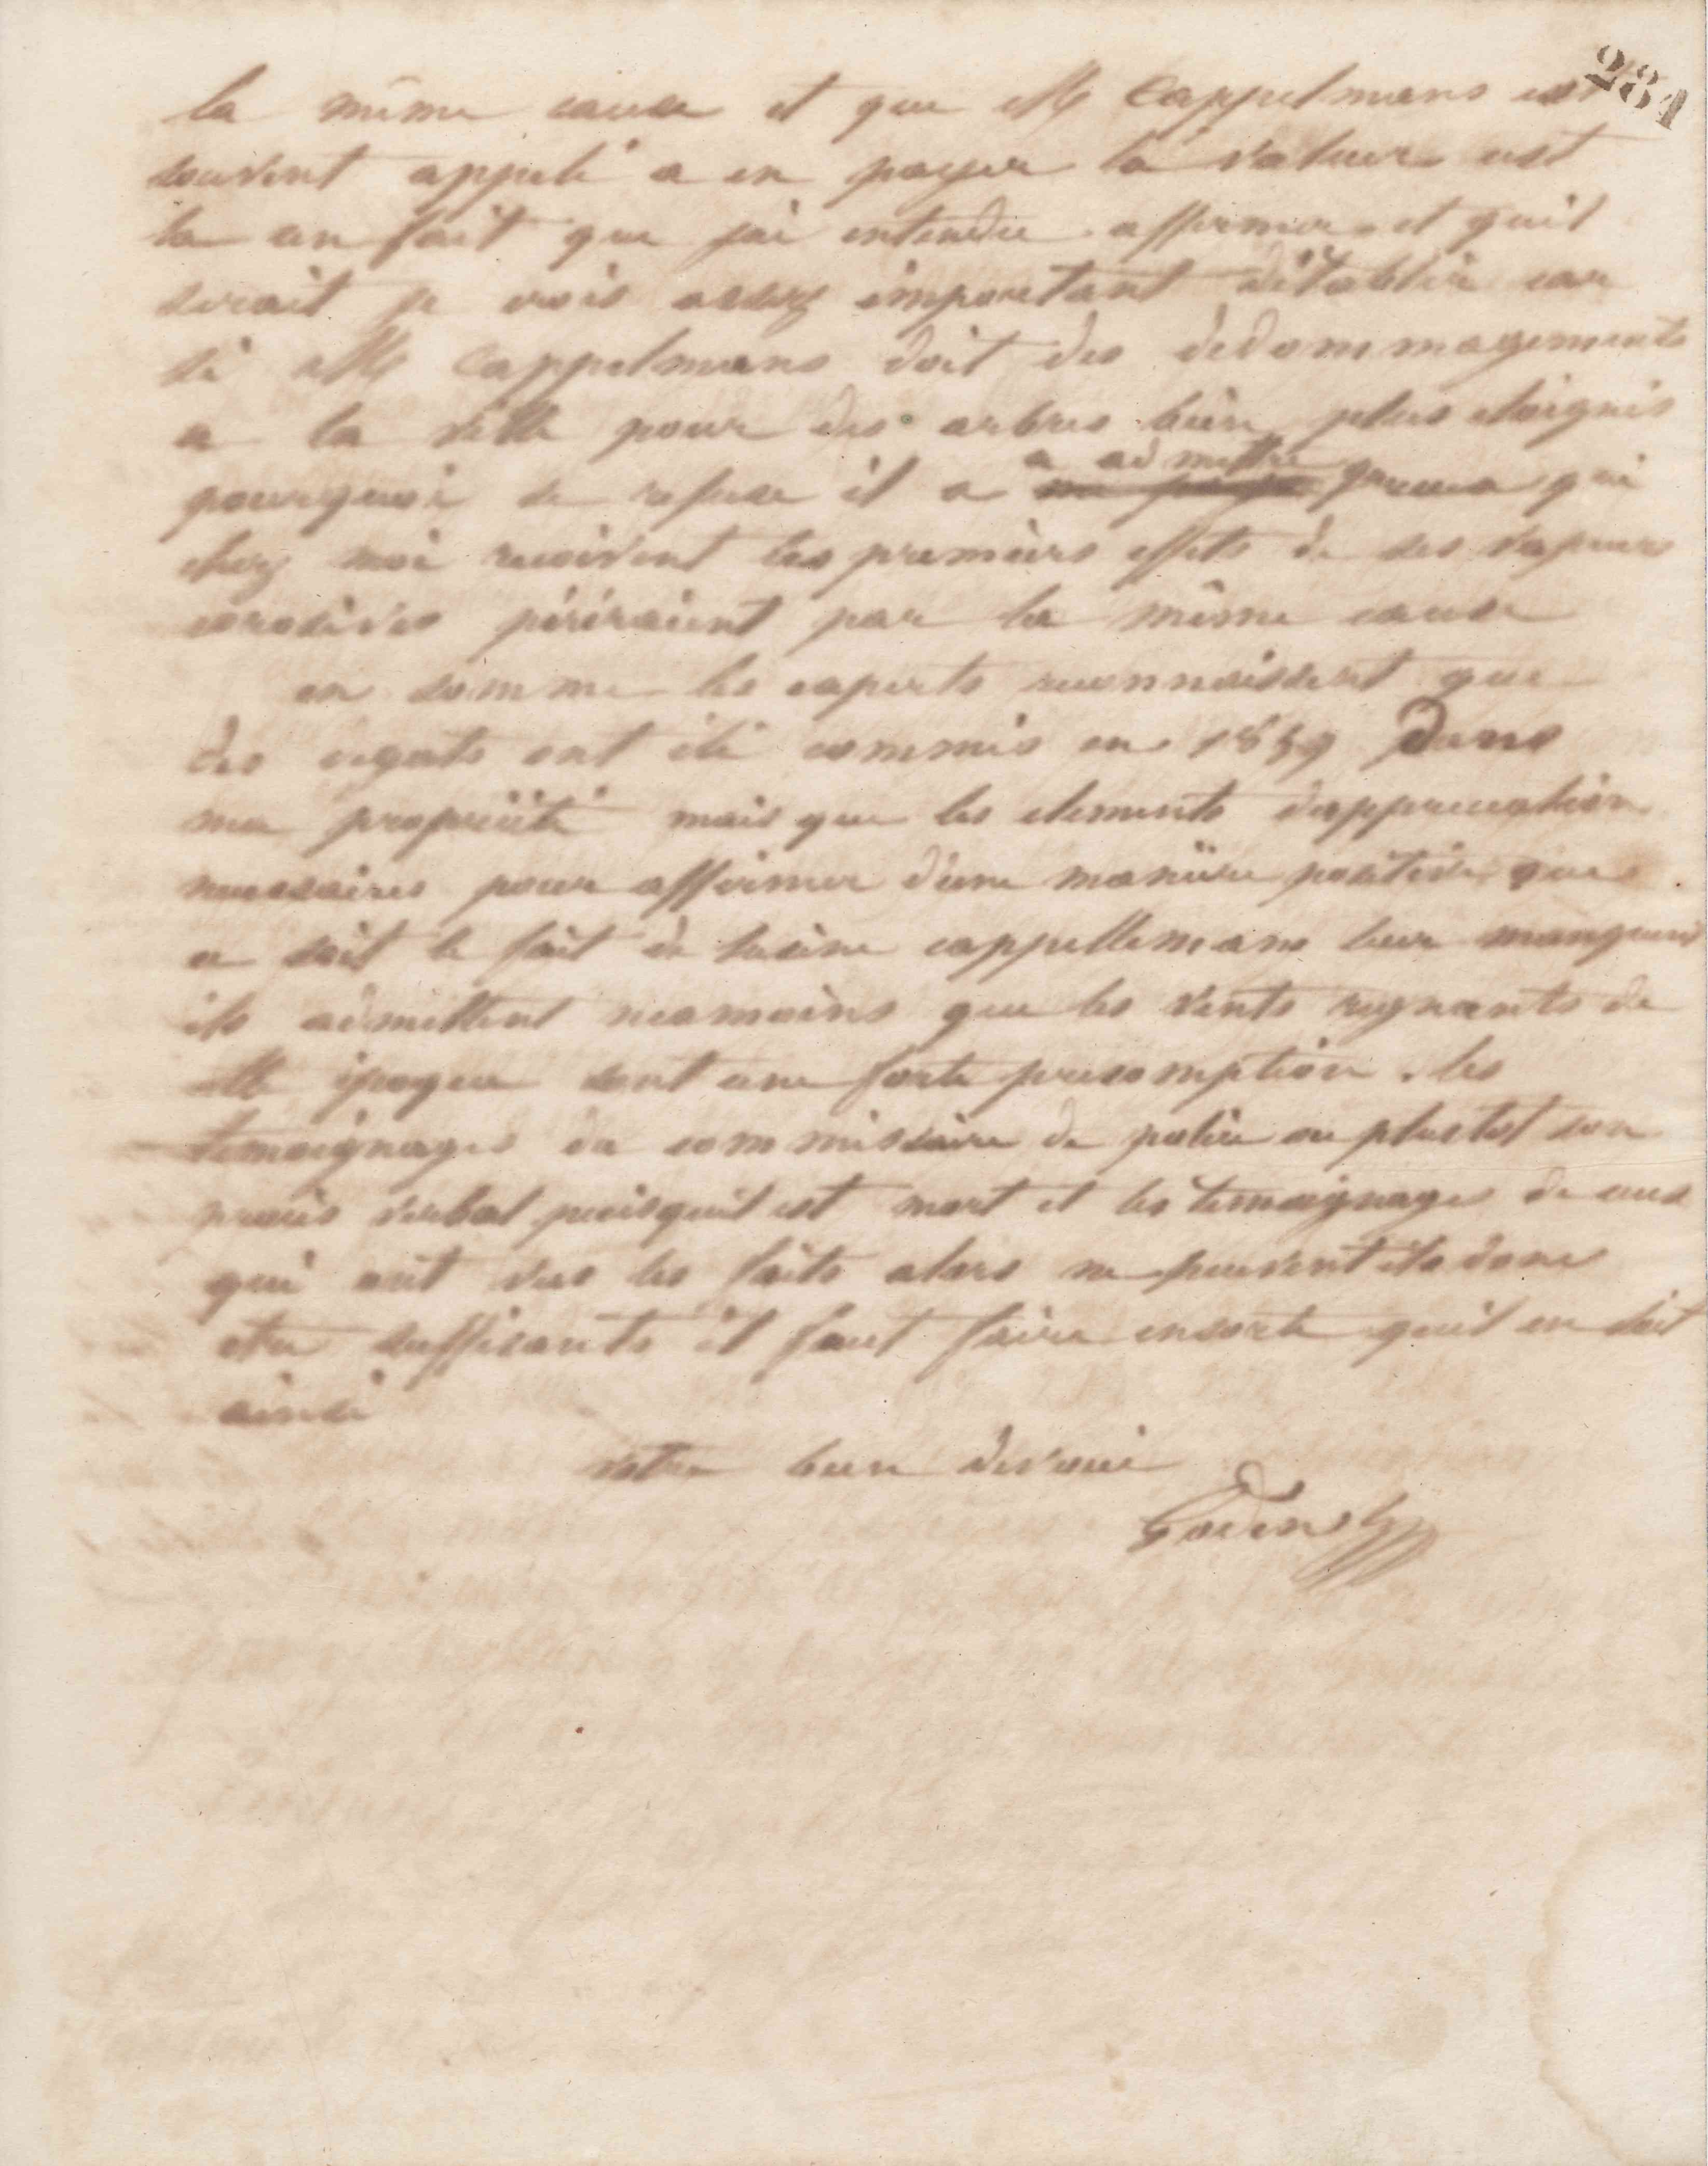 281
la même cause et que Mr Cappelmans est
souvent appelé a en payer la valeur cest
la un fait que jai entendu affirmer et quil
serait je crois assez important détablir car
si Mr Cappelmans doit des dédommagements
a la ville pour des arbres bien plus eloignés
a admettre
pourquoi se refuse til a que ceux qui
chez moi recoivent les premiers effets de ses vapeurs
corosives périraient par la même cause
en somme les experts reconnaissent que
des degats ont été commis en 1859 Dans
ma propriété mais que les elements dappreciation
necessaires pour affirmer dune manière positive que
ce soit le fait de lusine cappellemans leur manquent
ils admettent neamoins que les vents regnants de
cette époque sont une forte presomption. les
temoignages du commissaire de police ou plustot son
procès verbal puisquil est mort et les temoignages de ceux
qui ont vus les faits alors ne peuvent ils donc
etre suffisants il faut faire ensorte quil en soit
ainsi
votre bien devoué
Godin